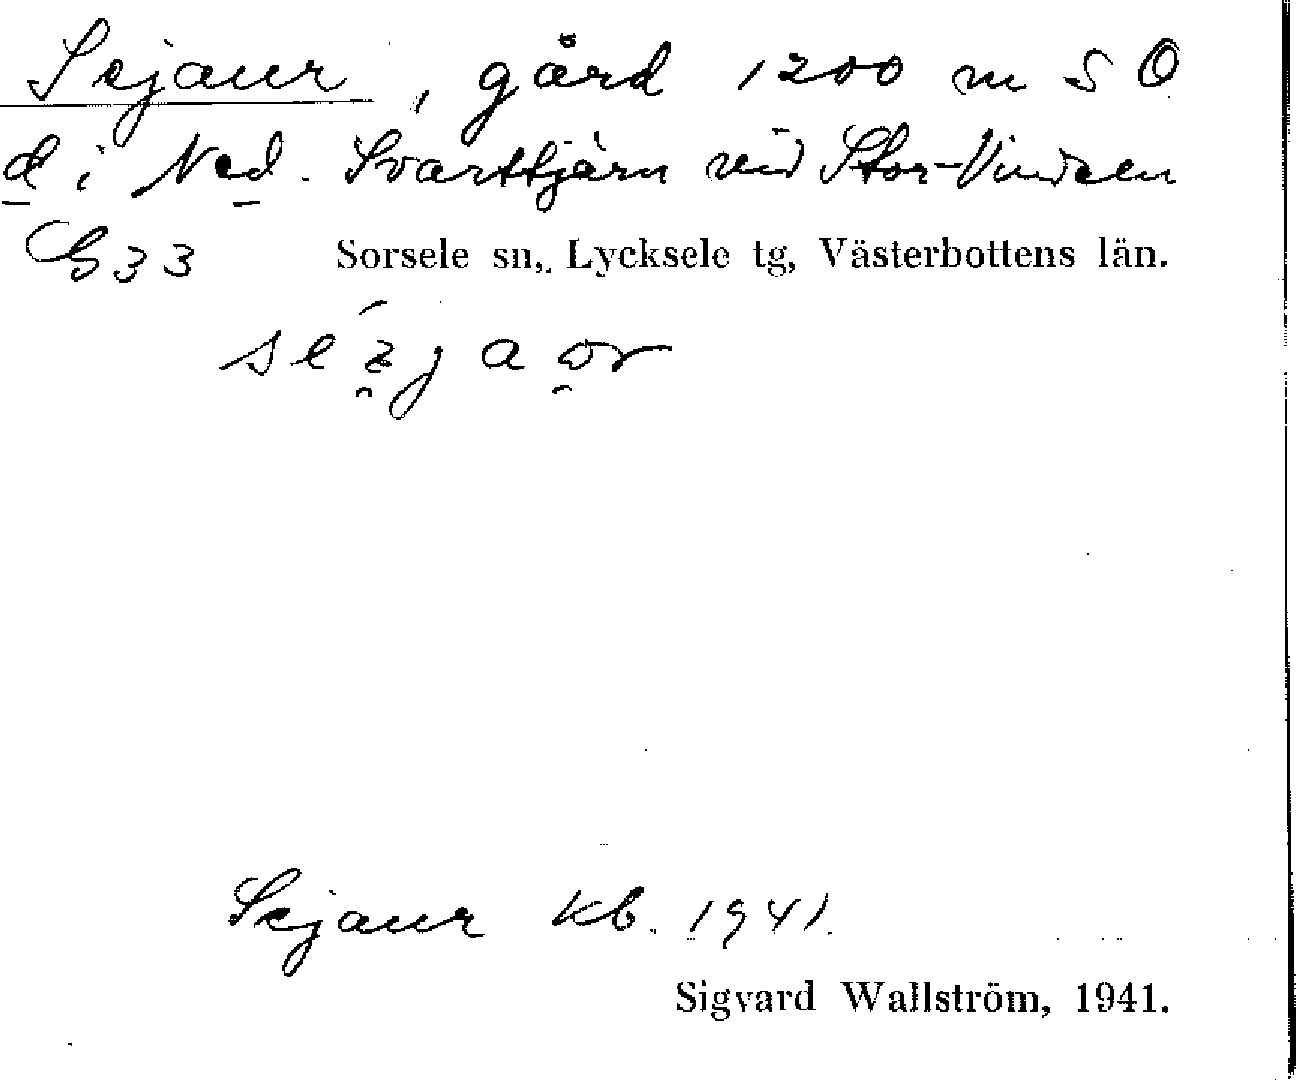 Sejaur, gård 1200 m S O
d i Ned. Svarttjärn vid Stor-Vindeln
G 33 Sorsele sn, Lycksele tg, Västerbottens län.
Sejaur kb. 1941.
Sigvard Wallström, 1941.